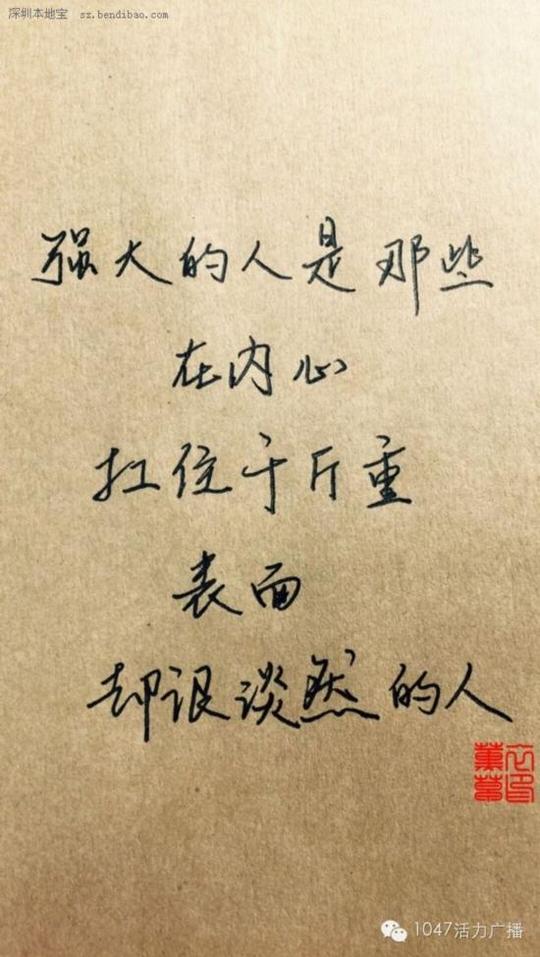 深圳本地宝 sz.bendibao.com
强大的人是那些
在内心
扛住千斤重
表面
却很淡然的人
1047活力广播